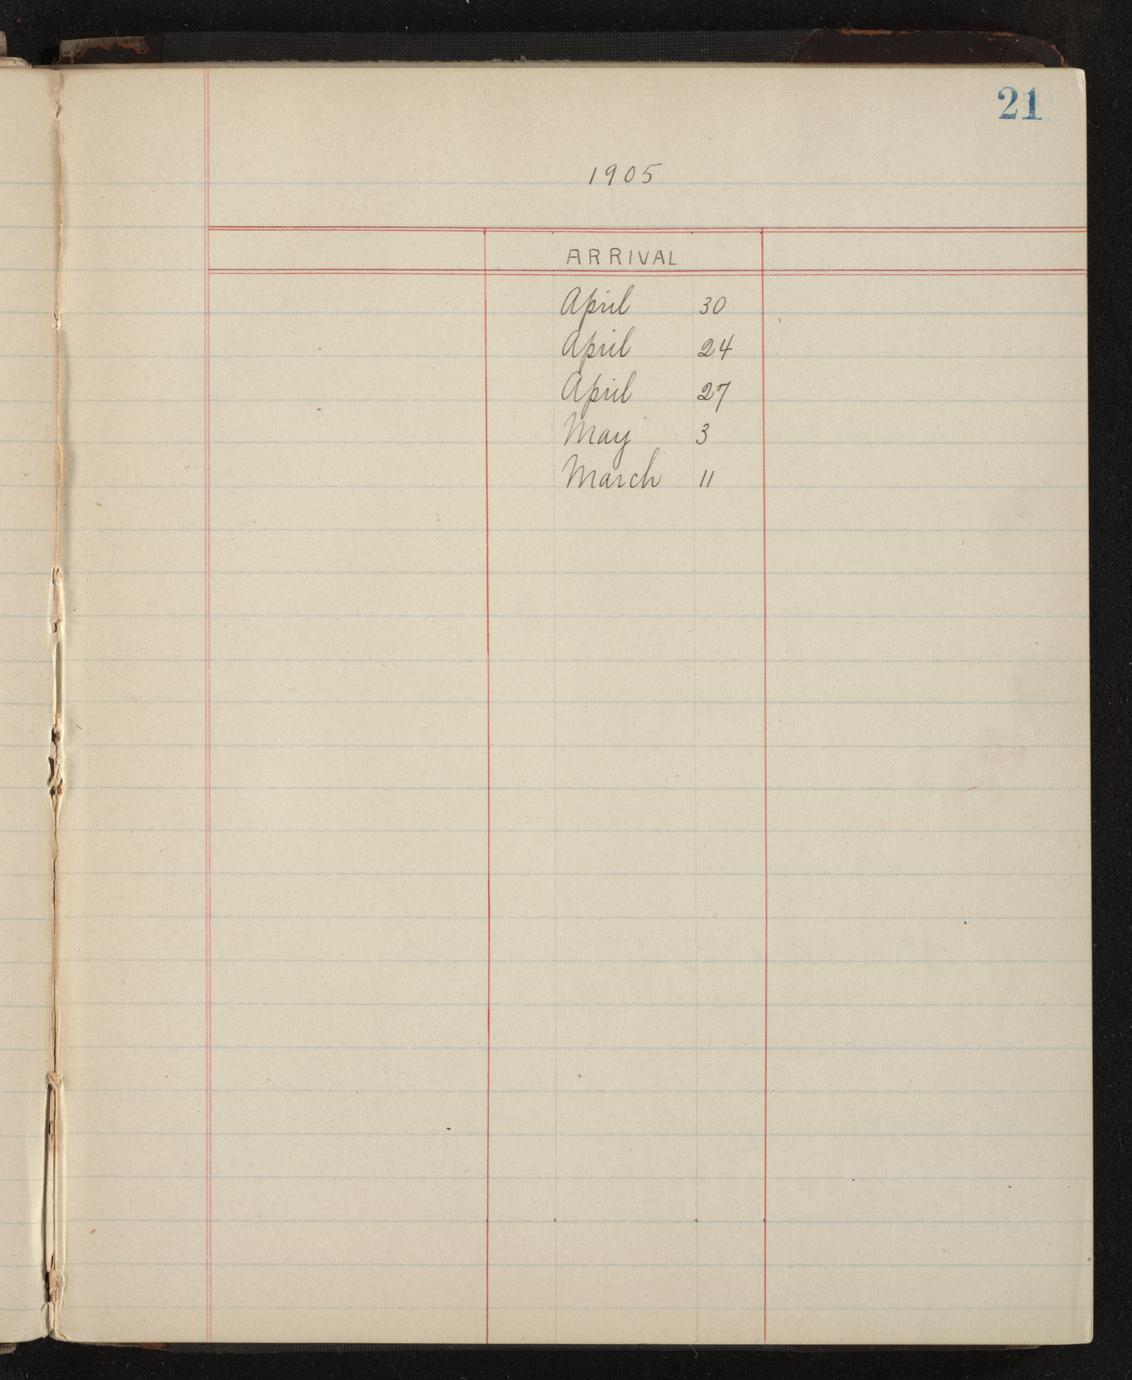 21
1905
ARRIVAL
April 30
April 24
April 27
May 3
March 11